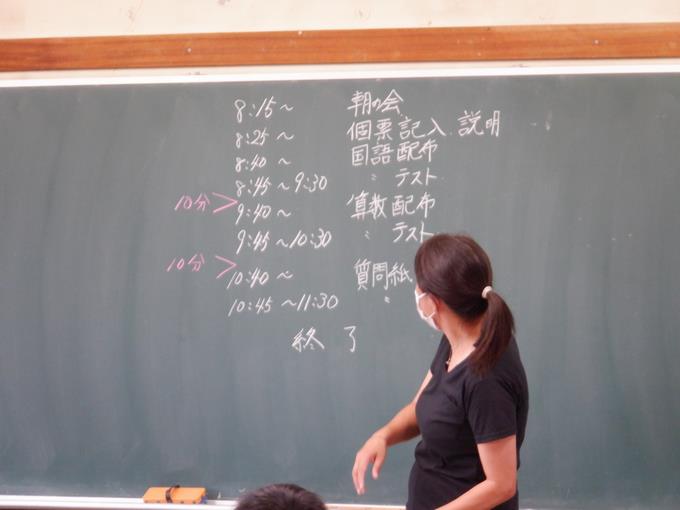 8:15～ 朝の会
8:25～ 個票記入.説明
8:40～ 国語配布
8:45～9:30 〃 テスト
10分>
9:40～ 算数配布
9:45～10:30 〃 テスト
10分>
10:40～ 質問紙
10:45～11:30 〃
終了